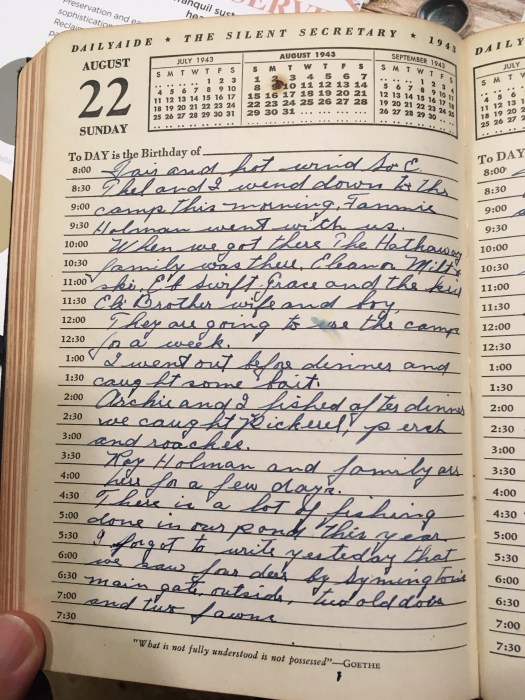 Preservation and ea
tranquil sust
sophistication
hea
Reclaim
DAILYAIDE ★ THE SILENT SECRETARY ★ 1943
AUGUST
22
SUNDAY
JULY 1943
S M T W T F S
1 2 3
4 5 6 7 8 9 10
11 12 13 14 15 16 17
18 19 20 21 22 23 24
25 26 27 28 29 30 31
AUGUST 1943
S M T W T F S
1 2 3 4 5 6 7
8 9 10 11 12 13 14
15 16 17 18 19 20 21
22 23 24 25 26 27 28
29 30 31
SEPTEMBER 1943
S M T W T F S
1 2 3 4
5 6 7 8 9 10 11
12 13 14 15 16 17 18
19 20 21 22 23 24 25
26 27 28 29 30
To DAY is the Birthday of
8:00 Fair and hot wind So E.
8:30 Thel and I wend down to the
9:00 camp this morning, Fannie
9:30 Holman went with us.
10:00 When we got there The Hathaway
10:30 family was there, Eleanor Milt &
11:00 skis, Eb Swift, Grace and the kid
11:30 Eb Brother wife and boy.
12:00 They are going to use the camp
12:30 for a week.
1:00 I went out before dinner and
1:30 caught some bait.
2:00 Archie and I fished after dinner
2:30 we caught Pickerel, perch
3:00 and roaches.
3:30 Roy Holman and family are
4:00 here for a few days.
4:30 There is a lot of fishing
5:00 done in our pond this year.
5:30 I forgot to write yesterday that
6:00 we saw four deer by Symington's
6:30 main gate, outside, two old does
7:00 and two fawns
7:30
"What is not fully understood is not possessed"—GOETHE
DAILY
JULY
S M T
4 5 6
11 12 13
18 19 20
25 26 27
To DAY
8:00
8:30
9:00
9:30
10:00
10:30
11:00
11:30
12:00
12:30
1:00
1:30
2:00
2:30
3:00
3:30
4:00
4:30
5:00
5:30
6:00
6:30
7:00
7:30